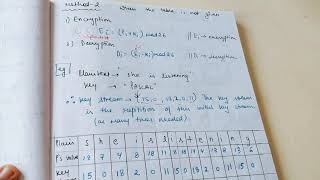 Method-2 when the table is not given
1) Encryption
Ei = (Pi + Ki) mod 26
2) Decryption
Di = (Ei - Ki) mod 26
Eg Plaintext → she is listening
Key → "PASCAL"
∴ Key stream → (15, 0, 18, 2, 0, 11) The key stream
is the repetition of this initial key stream
(as many times needed)
Plain S h e i s l i s t e n i n g
P's value 18 7 4 8 18 11 8 18 19 4 13 8 13 6
Key 15 0 18 2 0 11 15 0 18 2 0 11 15 0